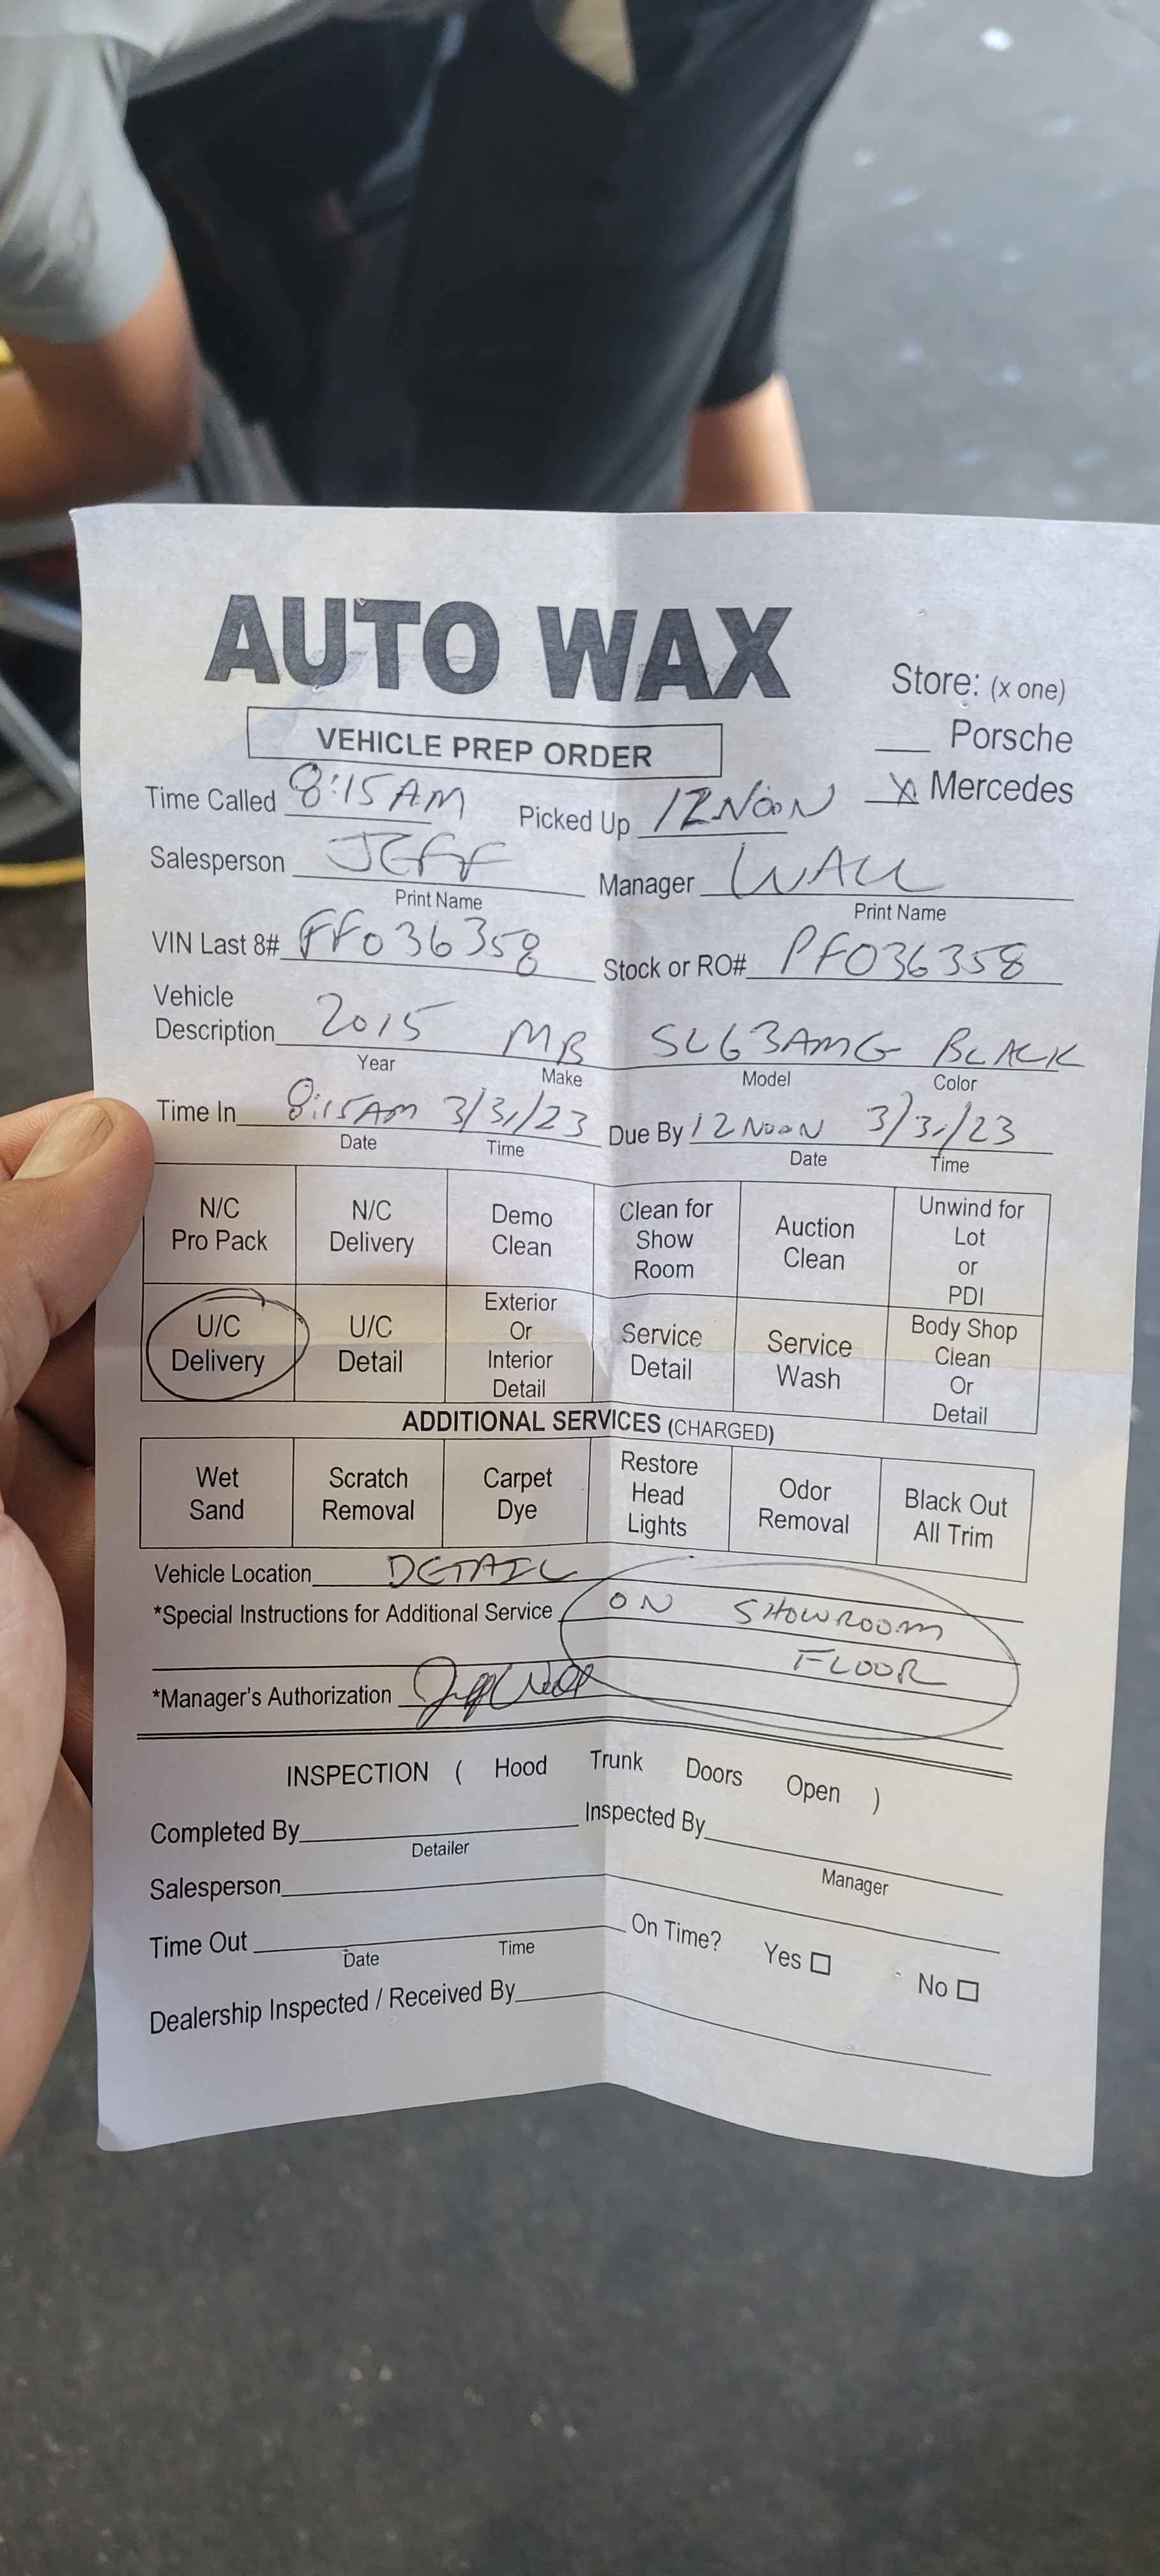 AUTO WAX
Store: (x one)
VEHICLE PREP ORDER
___ Porsche
X Mercedes
Time Called 8:15AM Picked Up 12 NOON
Salesperson JEFF Manager WALL
Print Name Print Name
VIN Last 8# FF036358 Stock or RO# PF036358
Vehicle
Description 2015 MB SL63AMG BLACK
Year Make Model Color
Time In 8:15AM 3/31/23 Due By 12 NOON 3/31/23
Date Time Date Time
N/C Pro Pack
N/C Delivery
Demo Clean
Clean for Show Room
Auction Clean
Unwind for Lot or PDI
U/C Delivery
U/C Detail
Exterior Or Interior Detail
Service Detail
Service Wash
Body Shop Clean Or Detail
ADDITIONAL SERVICES (CHARGED)
Wet Sand
Scratch Removal
Carpet Dye
Restore Head Lights
Odor Removal
Black Out All Trim
Vehicle Location DETAIL
*Special Instructions for Additional Service ON SHOWROOM
FLOOR
*Manager's Authorization
INSPECTION ( Hood Trunk Doors Open )
Completed By Inspected By
Detailer Manager
Salesperson
Time Out On Time? Yes ☐ No ☐
Date Time
Dealership Inspected / Received By